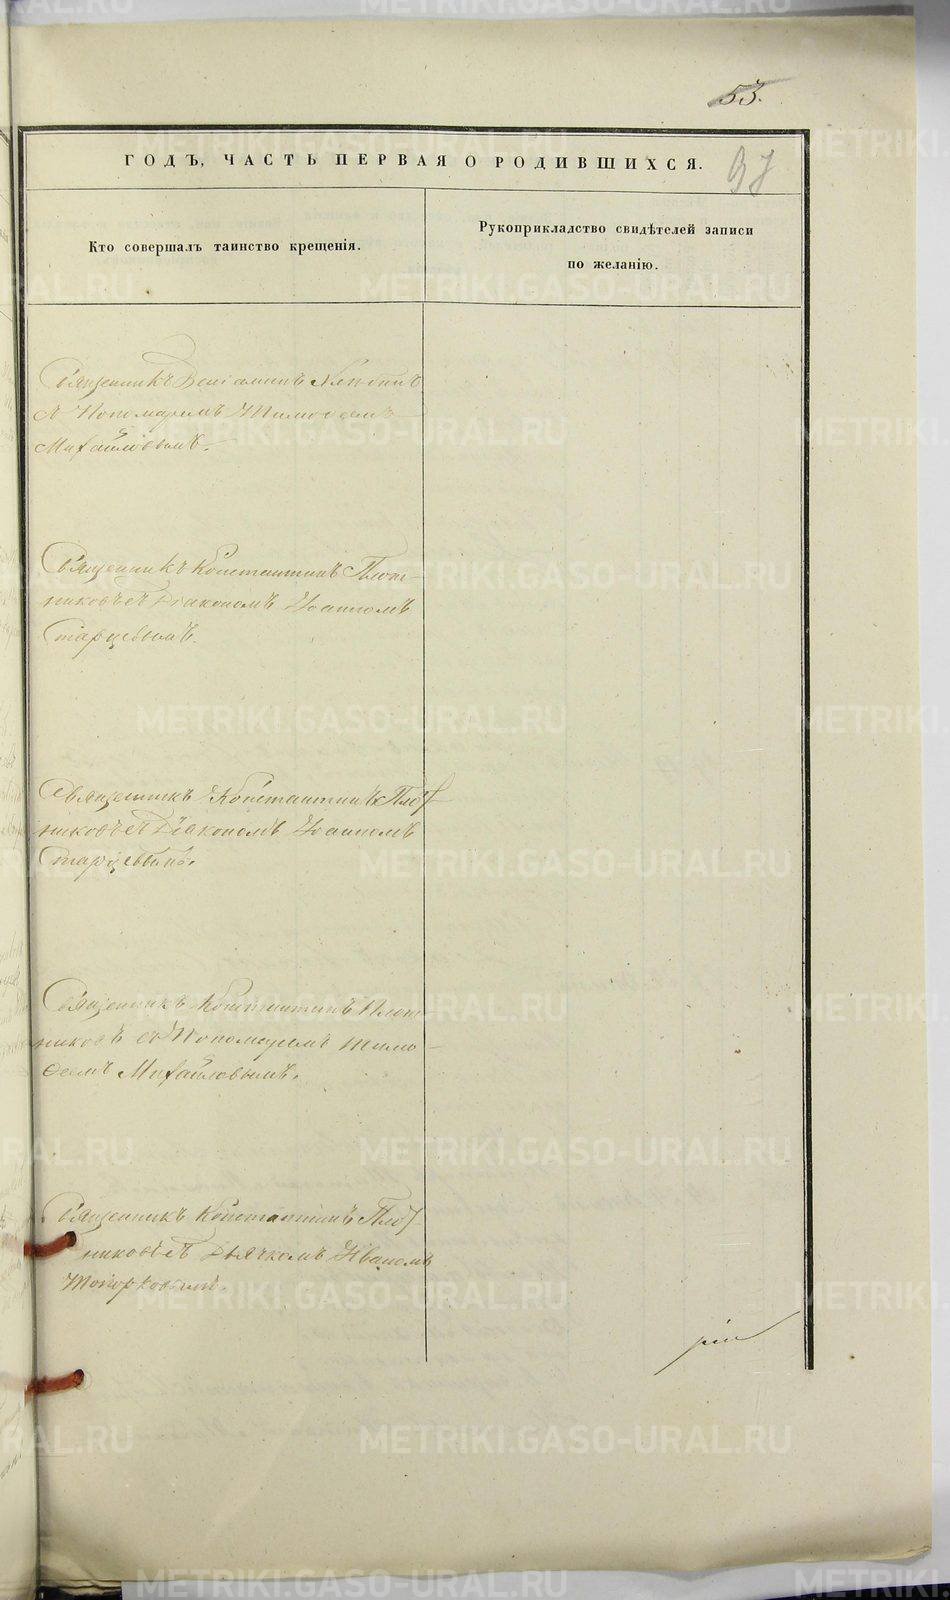 53.
97
ГОДЪ, ЧАСТЬ ПЕРВАЯ О РОДИВШИХСЯ.
Кто совершалъ таинство крещенія.
Рукоприкладство свидѣтелей записи
по желанію.
Священникъ Веніаминъ
Пономаремъ Тимофеемъ
Михайловымъ.
Священникъ Константинъ Плот-
никовъ съ Діакономъ Іоанномъ
Старцевымъ.
Священникъ Константинъ Плот
никовъ съ Діакономъ Іоанномъ
Старцевымъ.
Священникъ Константинъ Плот
никовъ съ Пономаремъ Тимо-
феемъ Михайловымъ.
Священникъ Константинъ Плот
никовъ съ Дьячкомъ Иваномъ
Топорковымъ.
METRIKI.GASO-URAL.RU